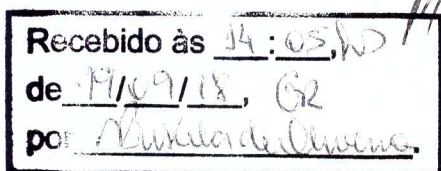 Recebido às 14:05,hs
de 19/09/18, GR
por de Oliveira.